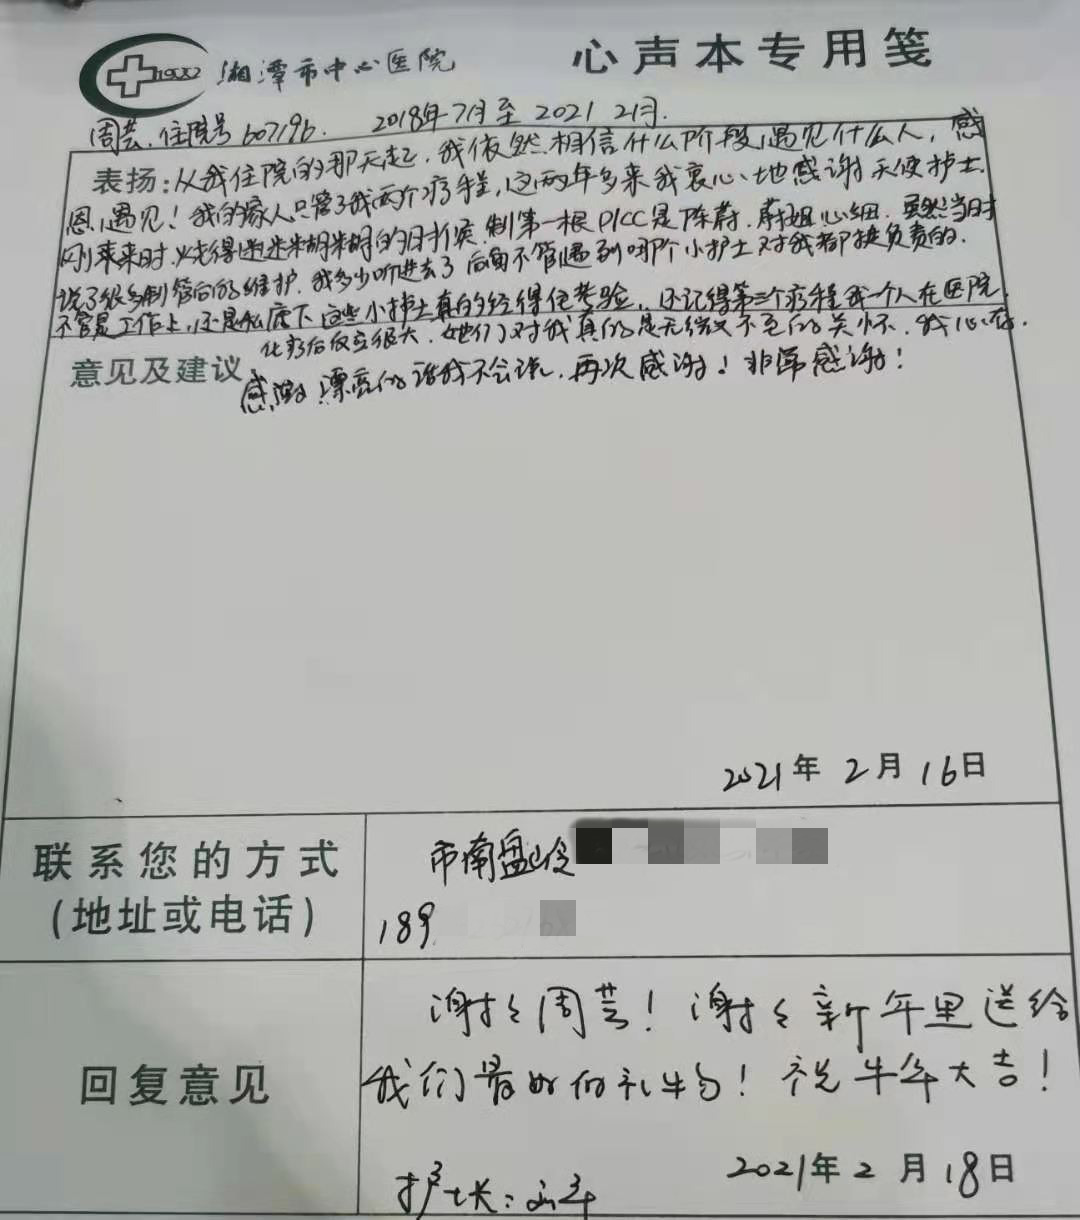 1900
湘潭市中心医院
心声本专用笺
周芸.住院号607196. 2018年7月至2021 2月.
表扬:从我住院的那天起,我依然相信什么阶段遇见什么人,感
恩遇见!我的家人只管了我两个疗程,这两年多来我衷心地感谢天使护士.
刚来来时.烧得迷迷糊糊的时候.制第一根PICC是陈蔚.蔚姐心细.虽然当时
说了很多制管后的维护.我多少听进去了后面不管遇到哪个小护士对我都挺负责的.
不管是工作上,还是私底下这些小护士真的经得住考验.还记得第三个疗程我一个人在医院.
化疗后反应很大.她们对我真的是无微不至的关怀.我心存.
意见及建议
感激!漂亮的话我不会说.再次感谢!非常感谢!
2021年2月16日
联系您的方式
(地址或电话)
市南盘岭
189
回复意见
谢谢周芸!谢谢新年里送给
我们最好的礼物!祝牛年大吉!
护士长:
2021年2月18日